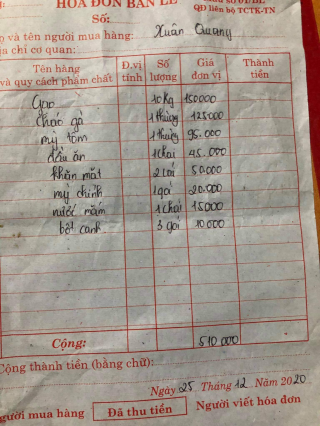 HÓA ĐƠN BÁN LẺ
QĐ liên bộ TCTK-TN
Số:
ọ và tên người mua hàng: Xuân Quang
ịa chỉ cơ quan:
Tên hàng và quy cách phẩm chất Đ.vị tính Số lượng Giá đơn vị Thành tiền
Gạo 10kg 150000
cháo gà 1 thùng 125000
mỳ tôm 1 thùng 95.000
dầu ăn 1 chai 45.000
khăn mặt 2 cái 50.000
mỳ chính 1 gói 20.000
nước mắm 1 chai 15000
bột canh 3 gói 10.000
Cộng: 510.000
Cộng thành tiền (bằng chữ):
Ngày 25 Tháng 12 Năm 2020
gười mua hàng Đã thu tiền Người viết hóa đơn